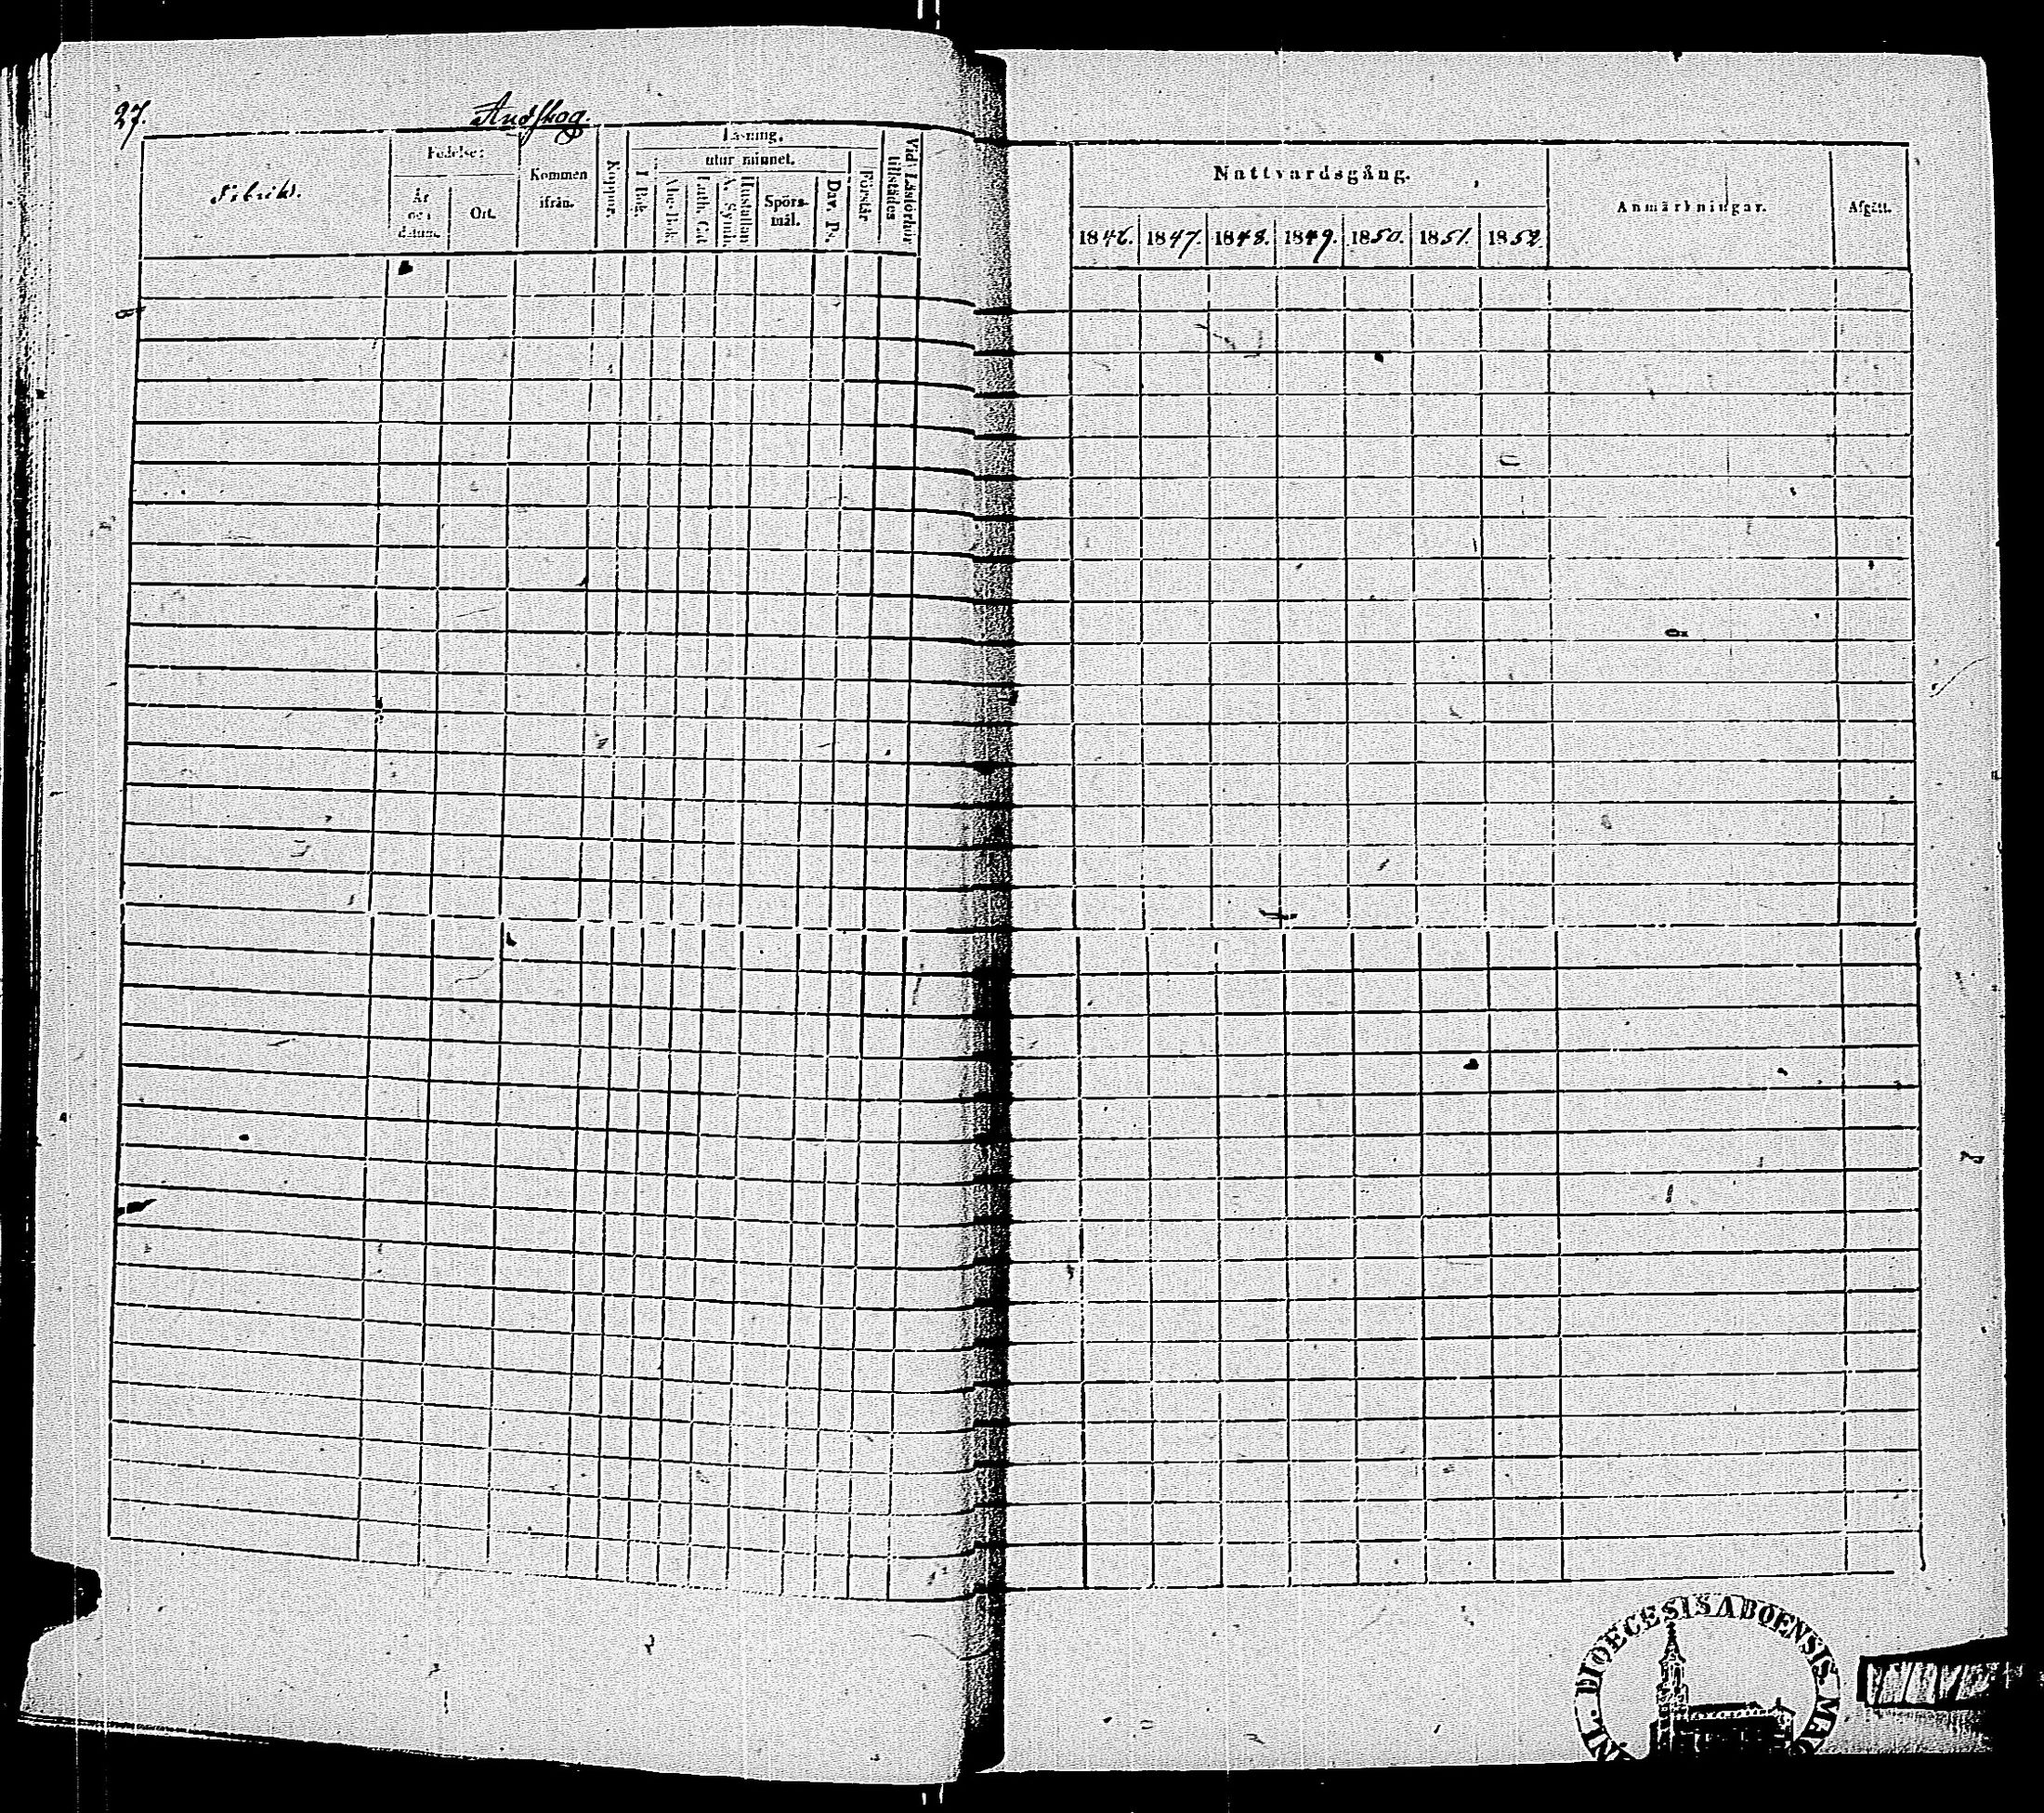 27.
Andskog.
Fabriks.
Födelse:
År och datum.
Ort.
Kommen ifrån.
Koppor.
Läsning.
I Bok.
utur minnet.
Abc-Bok.
Luth. Cat.
Hustaflan A. Symb.
Spörsmål.
Dav. Ps.
Förstår.
Vid Läsförhör tillstädes
Nattvardsgång.
1846. 1847. 1848. 1849. 1850. 1851. 1852.
Anmärkningar.
Afgått.
DIOECESIS ABOENSIS